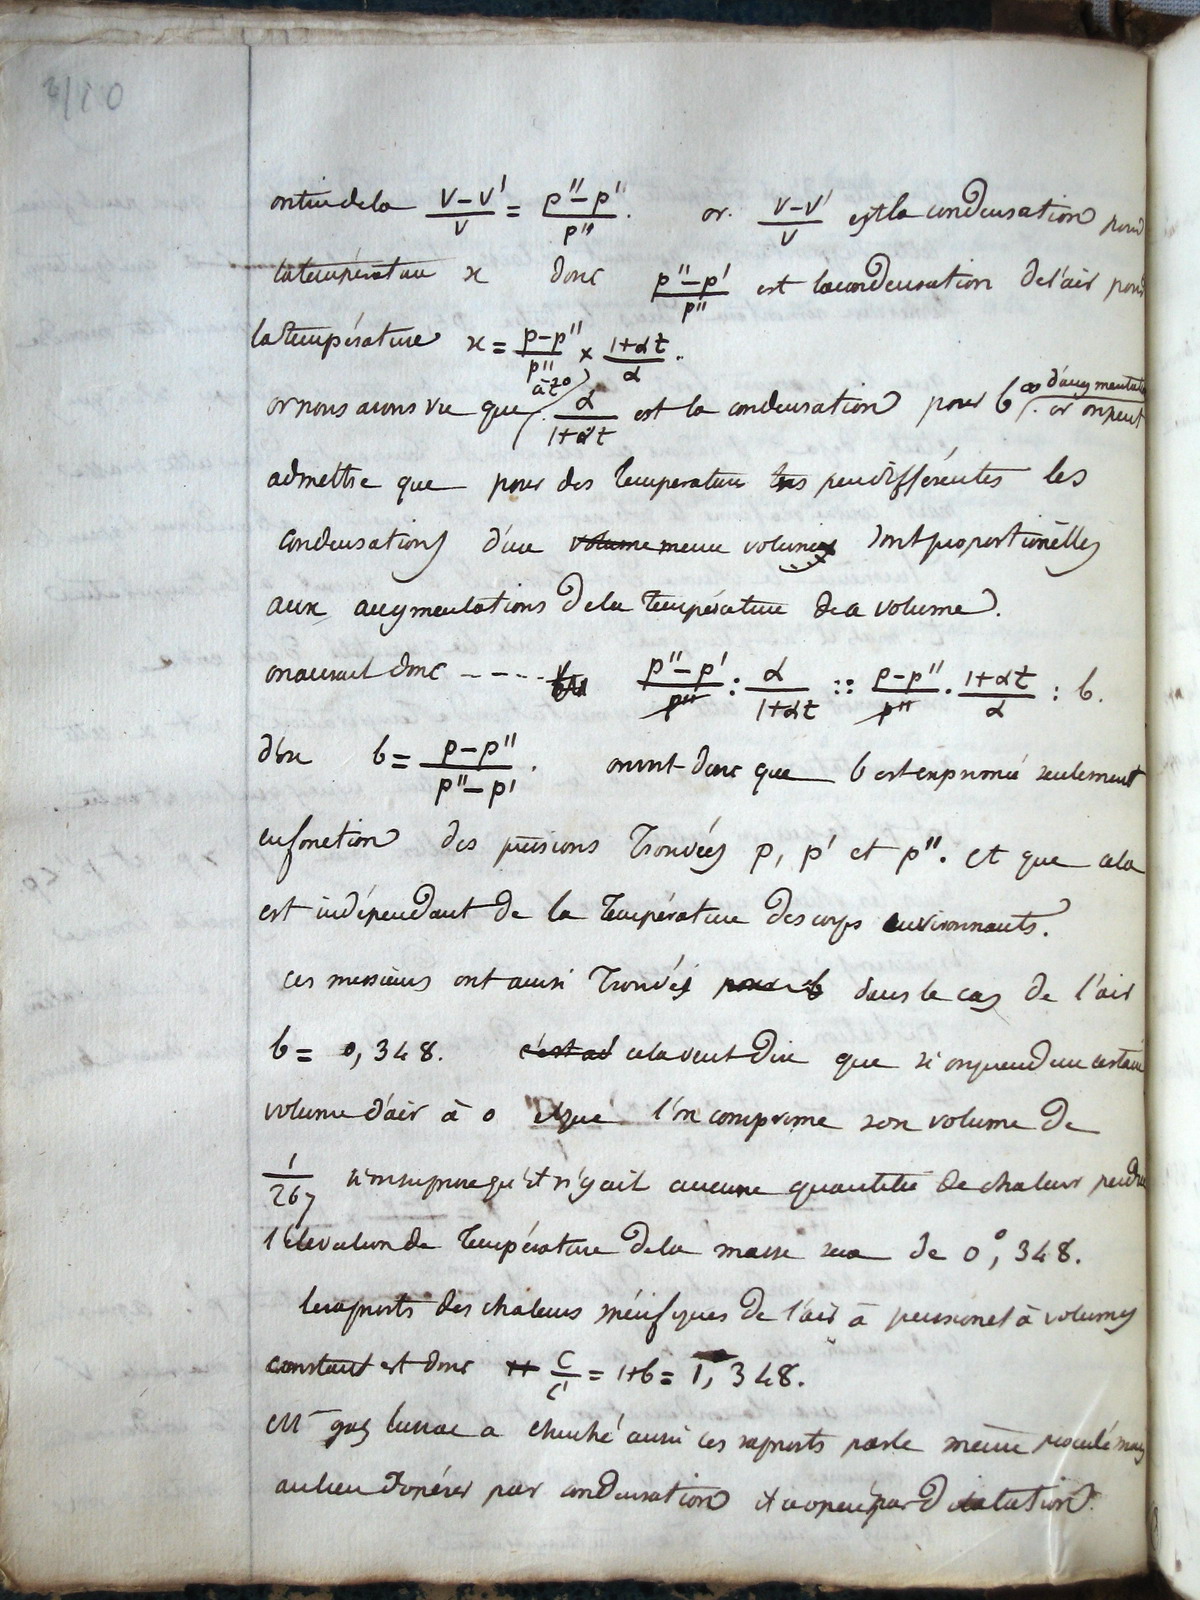 on tire de la (V-V')/V = (p''-p')/p''. or (V-V')/V est la condensation pour
la température x donc (p''-p')/p'' est la condensation de l'air pour
la température x = (p-p'')/p'' × (1+αt)/α.
or nous avons vu que α/(1+αt) est la condensation pour b d'augmentation or on peut
admettre que pour des temperature très peu différentes les
condensations d'un volume meme volume sont proportionelles
aux augmentations de la température de a volume.
on aurait donc ---- (p''-p')/p'' : α/(1+αt) :: (p-p'')/p'' . (1+αt)/α : b.
d'ou b = (p-p'')/(p''-p'). on voit donc que b est exprimé seulement
en fonction des pressions trouvées p, p' et p''. et que cela
est indépendant de la température des corps environnants.
ces messieurs ont aussi trouvés pour b dans le cas de l'air
b = 0,348. c'est ad cela veut dire que si on prend un certain
volume d'air à 0 et que l'on comprime son volume de
1/267 si on suppose qu'il n'y ait aucune quantitée de chaleur perdue
l'élevation de température de la masse sera de 0°,348.
le rapports des chaleurs spécifiques de l'air à pression et à volumes
constant est donc C/C' = 1+b = 1,348.
Mr gay lussac a cherché aussi ces rapports par le même procédé mais
au lieu d'opérer par condensation il a opéré par dilatation.